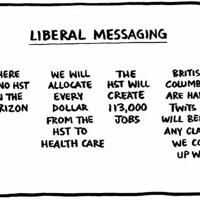 LIBERAL MESSAGING
HERE
NO HST
N THE
RIZON
WE WILL
ALLOCATE
EVERY
DOLLAR
FROM THE
HST TO
HEALTH CARE
THE
HST WILL
CREATE
113,000
JOBS
BRITIS
COLUMB
ARE HA
TWITS
WILL BE
ANY CLA
WE CO
UP W